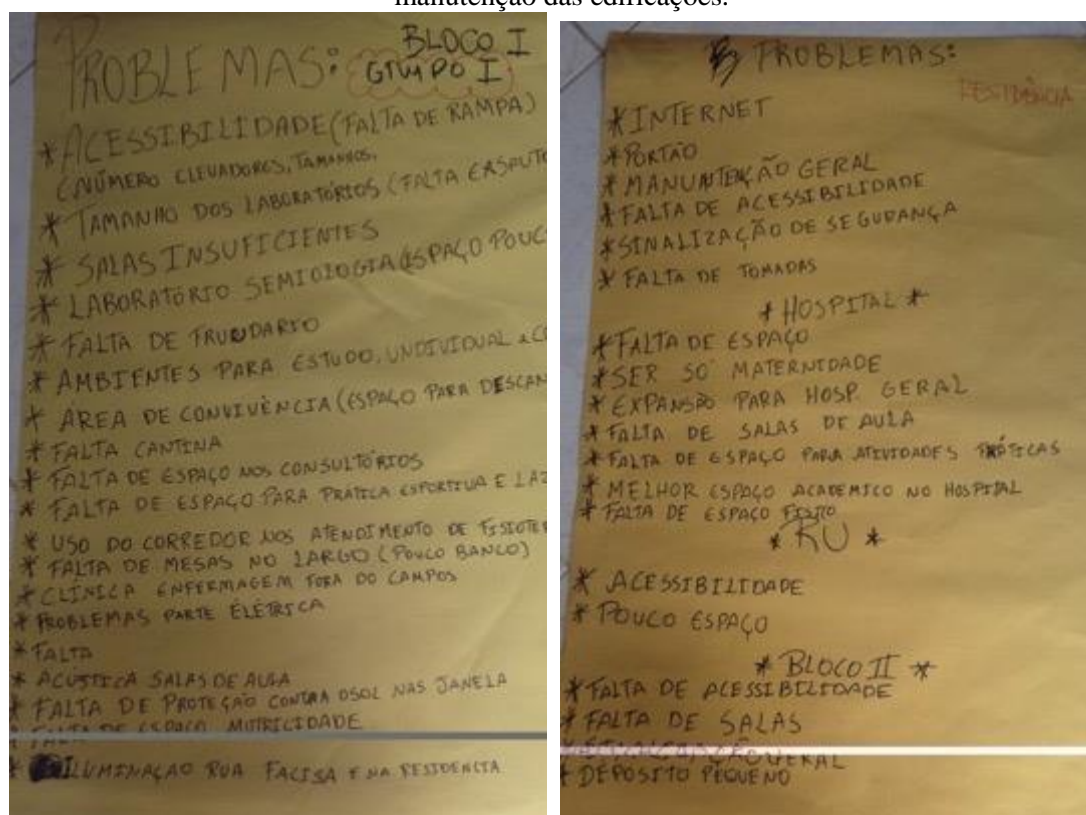 manutenção das edificações.
PROBLEMAS: BLOCO I
GRUPO I
* ACESSIBILIDADE (FALTA DE RAMPA)
(NÚMERO ELEVADORES, TAMANHOS,
* TAMANHO DOS LABORATÓRIOS (FALTA
* SALAS INSUFICIENTES
* LABORATÓRIO SEMIOLOGIA (ESPAÇO POUC
* FALTA DE
* AMBIENTES PARA ESTUDO, UNDIVIDUAL e CO
* AREA DE CONVIVÊNCIA (ESPAÇO PARA DESCAN
* FALTA CANTINA
* FALTA DE ESPAÇO NOS CONSULTÓRIOS
* FALTA DE ESPAÇO PARA PRÁTICA ESPORTIVA E LAZ
* USO DO CORREDOR NOS ATENDIMENTO DE FISIOTE
* FALTA DE MESAS NO LARGO (POUCO BANCO)
* CLÍNICA ENFERMAGEM FORA DO CAMPOS
* PROBLEMAS PARTE ELÉTRICA
* FALTA
* ACÚSTICA SALAS DE AULA
* FALTA DE PROTEÇÃO CONTRA OSOL NAS JANELA
FALTA DE ESPAÇO MOTRICIDADE
* ILUMINAÇAO RUA FACISA E NA RESIDENCIA
PROBLEMAS:
RESIDÊNCIA
* INTERNET
* PORTÃO
* MANUNTENÇÃO GERAL
* FALTA DE ACESSIBILIDADE
* SINALIZAÇÃO DE SEGURANÇA
* FALTA DE TOMADAS
* HOSPITAL *
* FALTA DE ESPAÇO
* SER SÓ MATERNIDADE
* EXPANSÃO PARA HOSP. GERAL
* FALTA DE SALAS DE AULA
* FALTA DE ESPAÇO PARA ATIVIDADES PRÁTICAS
* MELHOR ESPAÇO ACADEMICO NO HOSPITAL
* FALTA DE ESPAÇO FISICO
* RU *
* ACESSIBILIDADE
* POUCO ESPAÇO
* BLOCO II *
* FALTA DE ACESSIBILIDADE
* FALTA DE SALAS
GERAL
* DEPOSITO PEQUENO